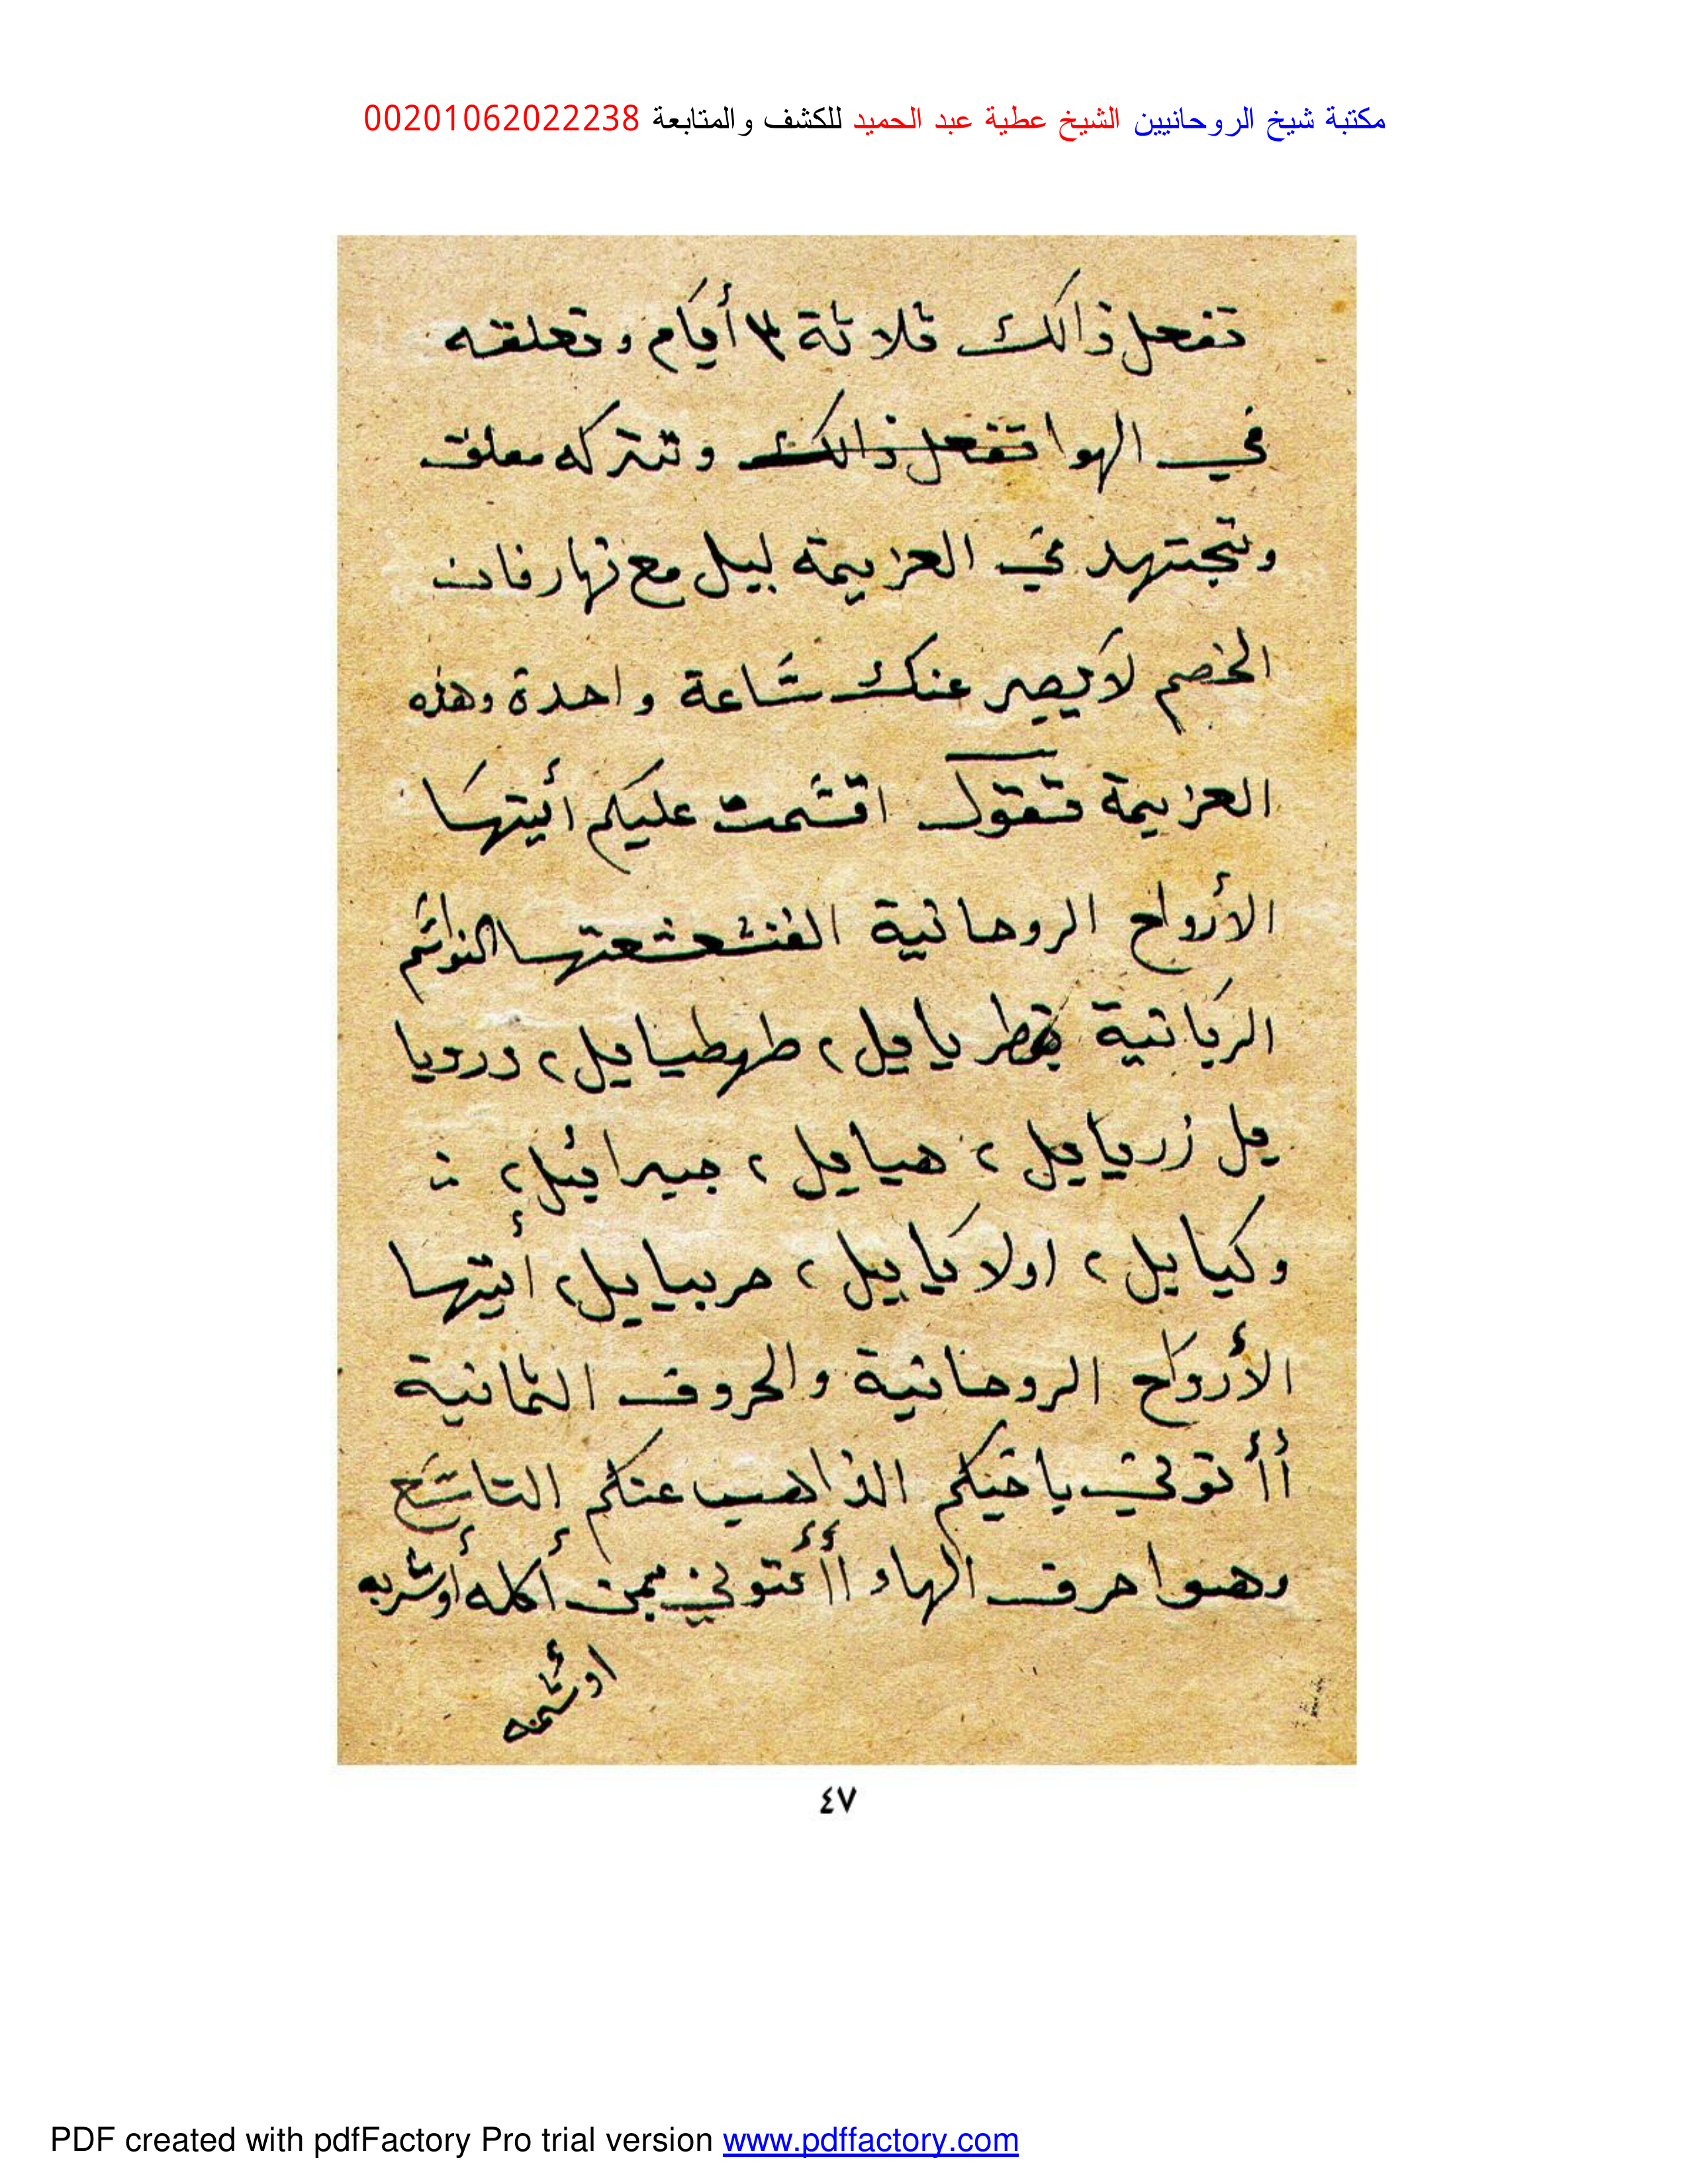 مكتبة شيخ الروحانيين الشيخ عطية عبد الحميد للكشف والمتابعة 00201062022238
تفعل ذالك ثلاثة ٣ أيام وتعلقه
في الهوا تفعل ذالك وتتركه معلق
وتجتهد في العزيمة ليل مع نهار فان
الخصم لا يصبر عنك ساعة واحدة وهذه
العزيمة تقول اقسمت عليكم أيتها
الأرواح الروحانية
الربانية طهطيايل ٢ درديا
يل زريايل ٢ هيايل ٢ جبرائيل ٢
وكيايل ٢ اولايايل ٢ حربيايل ٢ أيتها
الأرواح الروحانية والحروف الثمانية
أأتوني باخيكم الذاهب عنكم التاسع
وهوا حرف الهاء أأتوني بمن أكله أو شربه
او شمه
٤٧
PDF created with pdfFactory Pro trial version www.pdffactory.com